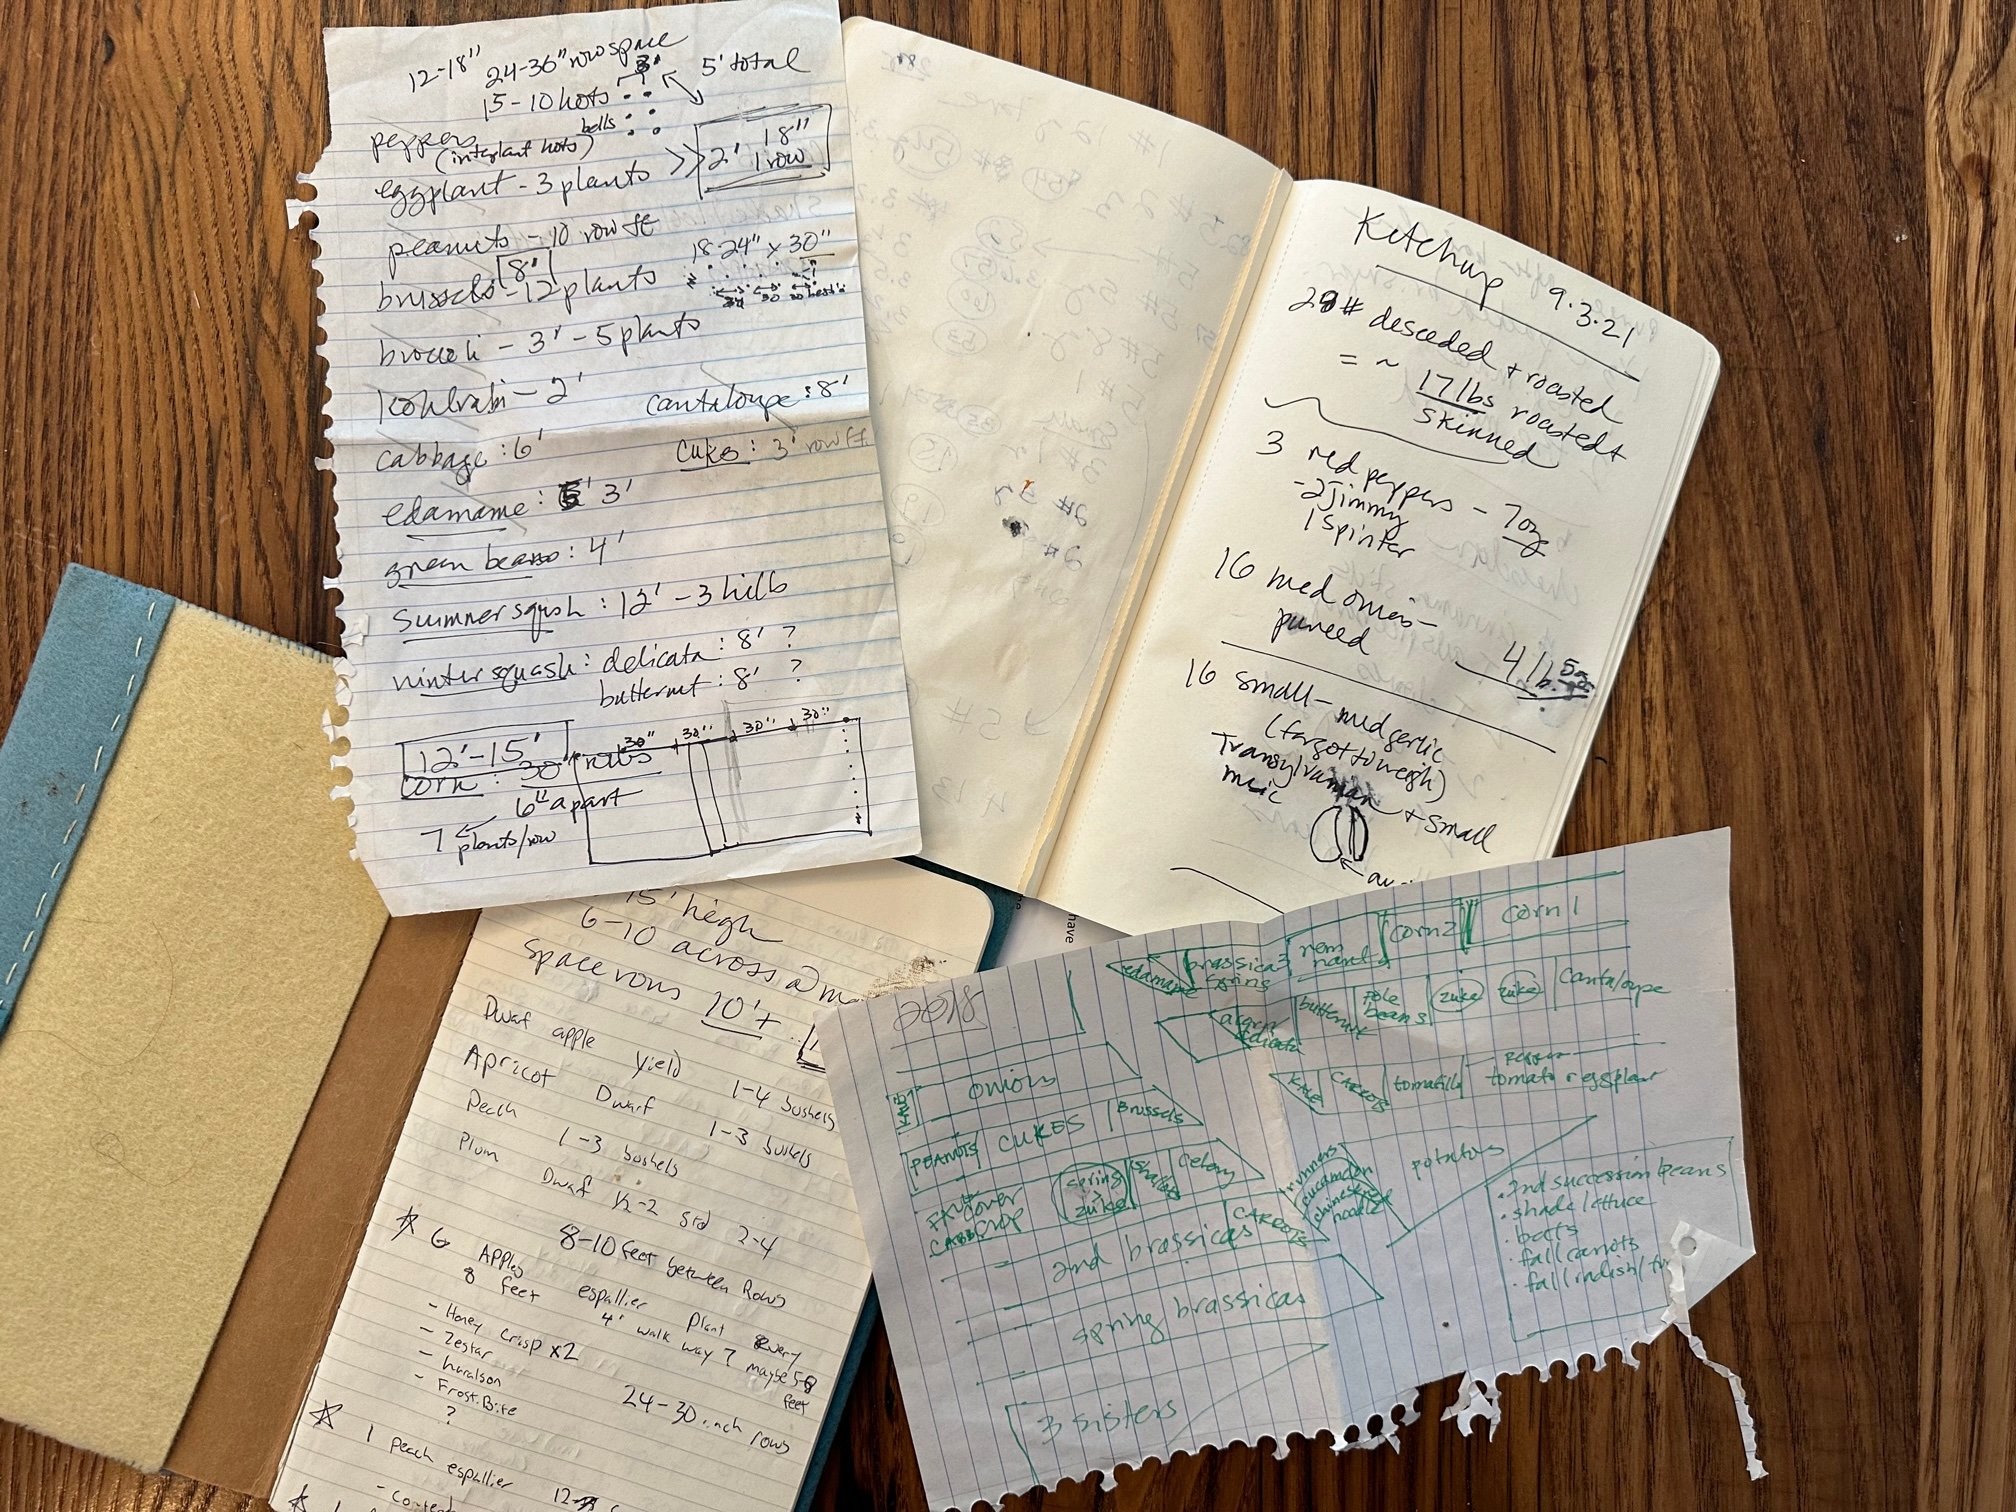 12-18"
24-36" row space
3'
5' total
15-10 hots
bells
peppers
(interplant hots)
eggplant - 3 plants >> 2' 18"
1 row
peanuts - 10 row ft
8'
18-24" x 30"
brussels - 12 plants
broccoli - 3' - 5 plants
kohlrabi - 2'
cantaloupe : 8'
cabbage : 6'
cukes : 3' row ft.
edamame : 3'
green beans : 4'
summer sqush : 12' - 3 hills
winter squash : delicata : 8' ?
butternut : 8' ?
12'-15'
30" 30" 30" 30"
corn : 30" rows
6" apart
7 plants/row
Ketchup 9.3.21
28# deseeded + roasted
= ~ 17 lbs roasted +
skinned
3 red peppers - 7oz
- 2 Jimmy
1 Spinter
16 med onions -
pureed 4 lb.
16 small-med garlic
(forgot to weigh)
Transylvanian + small
music
have
15' high
6-10 across
space rows 10'+
Dwarf apple yield 1-4 bushels
Apricot Dwarf 1-3 bushels
Peach 1-3 bushels
Plum Dwarf 1/2-2 std 2-4
8-10 feet between Rows
6 Apples espallier plant every
8 feet 4' walk way? maybe 5-8
feet
- Honey Crisp x2
- Zestar
- haralson
- Frost.Bite
?
24-30 inch rows
1 peach espallier
2018
edamame
brassica
spring
corn 2
corn 1
acorn
delicata
butternut
Pole
beans
zuke
zuke
cantaloupe
KALE
CARROTS
tomatillo
pepper
tomato eggplant
onions
PEANUTS
CUKES
Brussels
COVER
CROP
spring
zuke
shallots
celery
2nd brassicas
CARROTS
runners
cucamelon
chinese
noodle
potatoes
spring brassicas
3 sisters
· 2nd succession beans
· shade lettuce
· beets
· fall carrots
· fall radish/